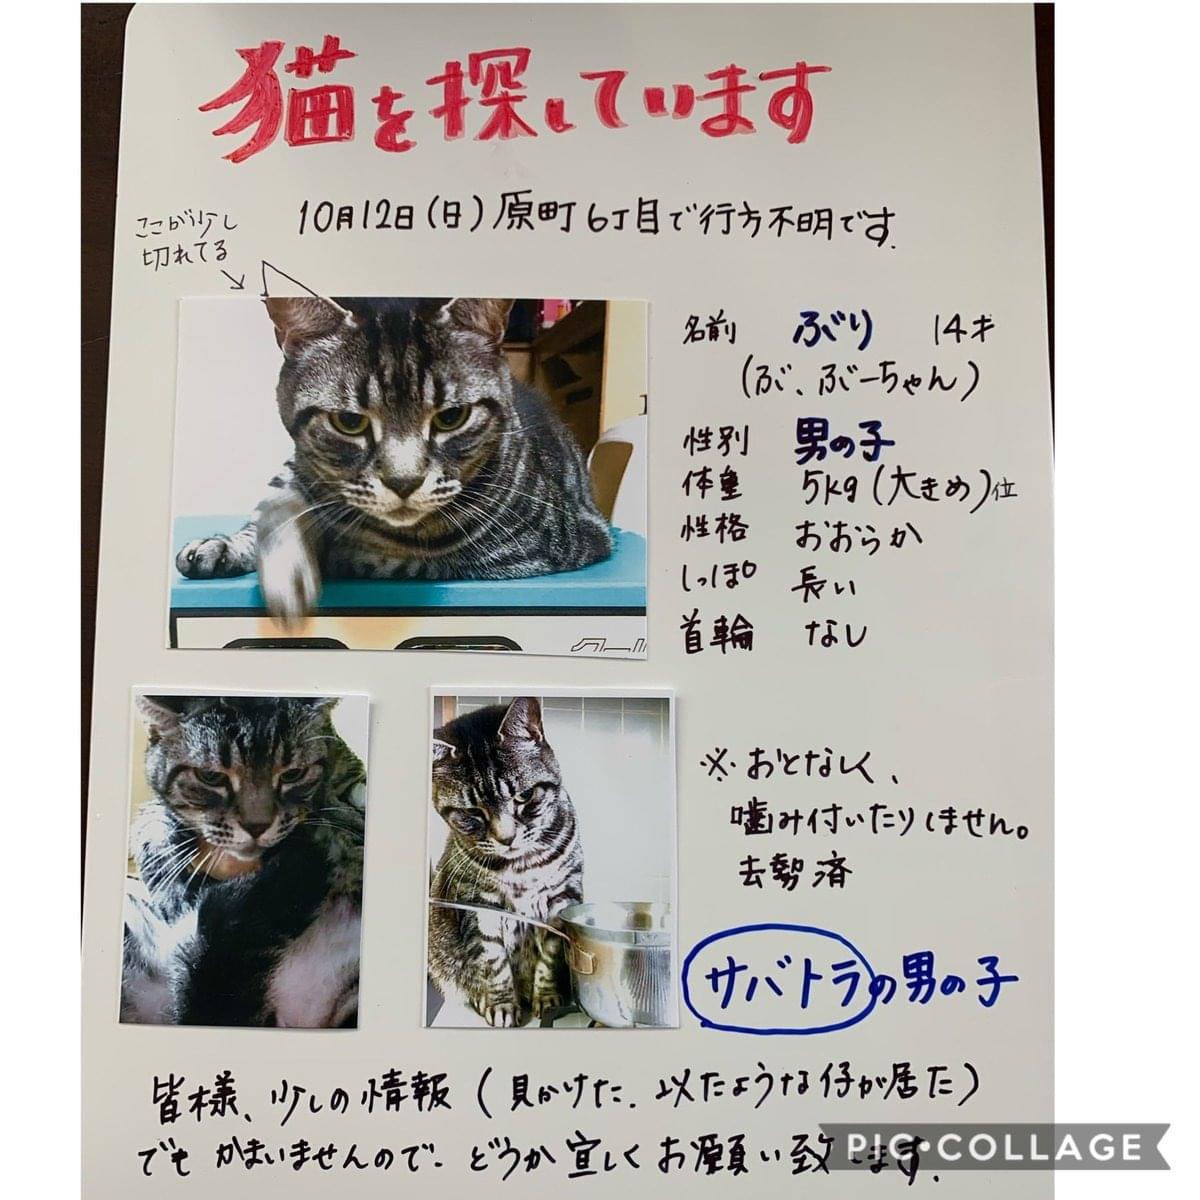 猫を探しています
10月12日(日)原町6丁目で行方不明です.
ここが少し
切れてる
名前 ぶり 14才
(ぶ、ぶーちゃん)
性別 男の子
体重 5kg(大きめ)位
性格 おおらか
しっぽ 長い
首輪 なし
※おとなしく、
噛み付いたりしません。
去勢済
サバトラの男の子
皆様、少しの情報(見かけた.以たような仔が居た)
でもかまいませんので、どうか宜しくお願い致します.
PIC•COLLAGE